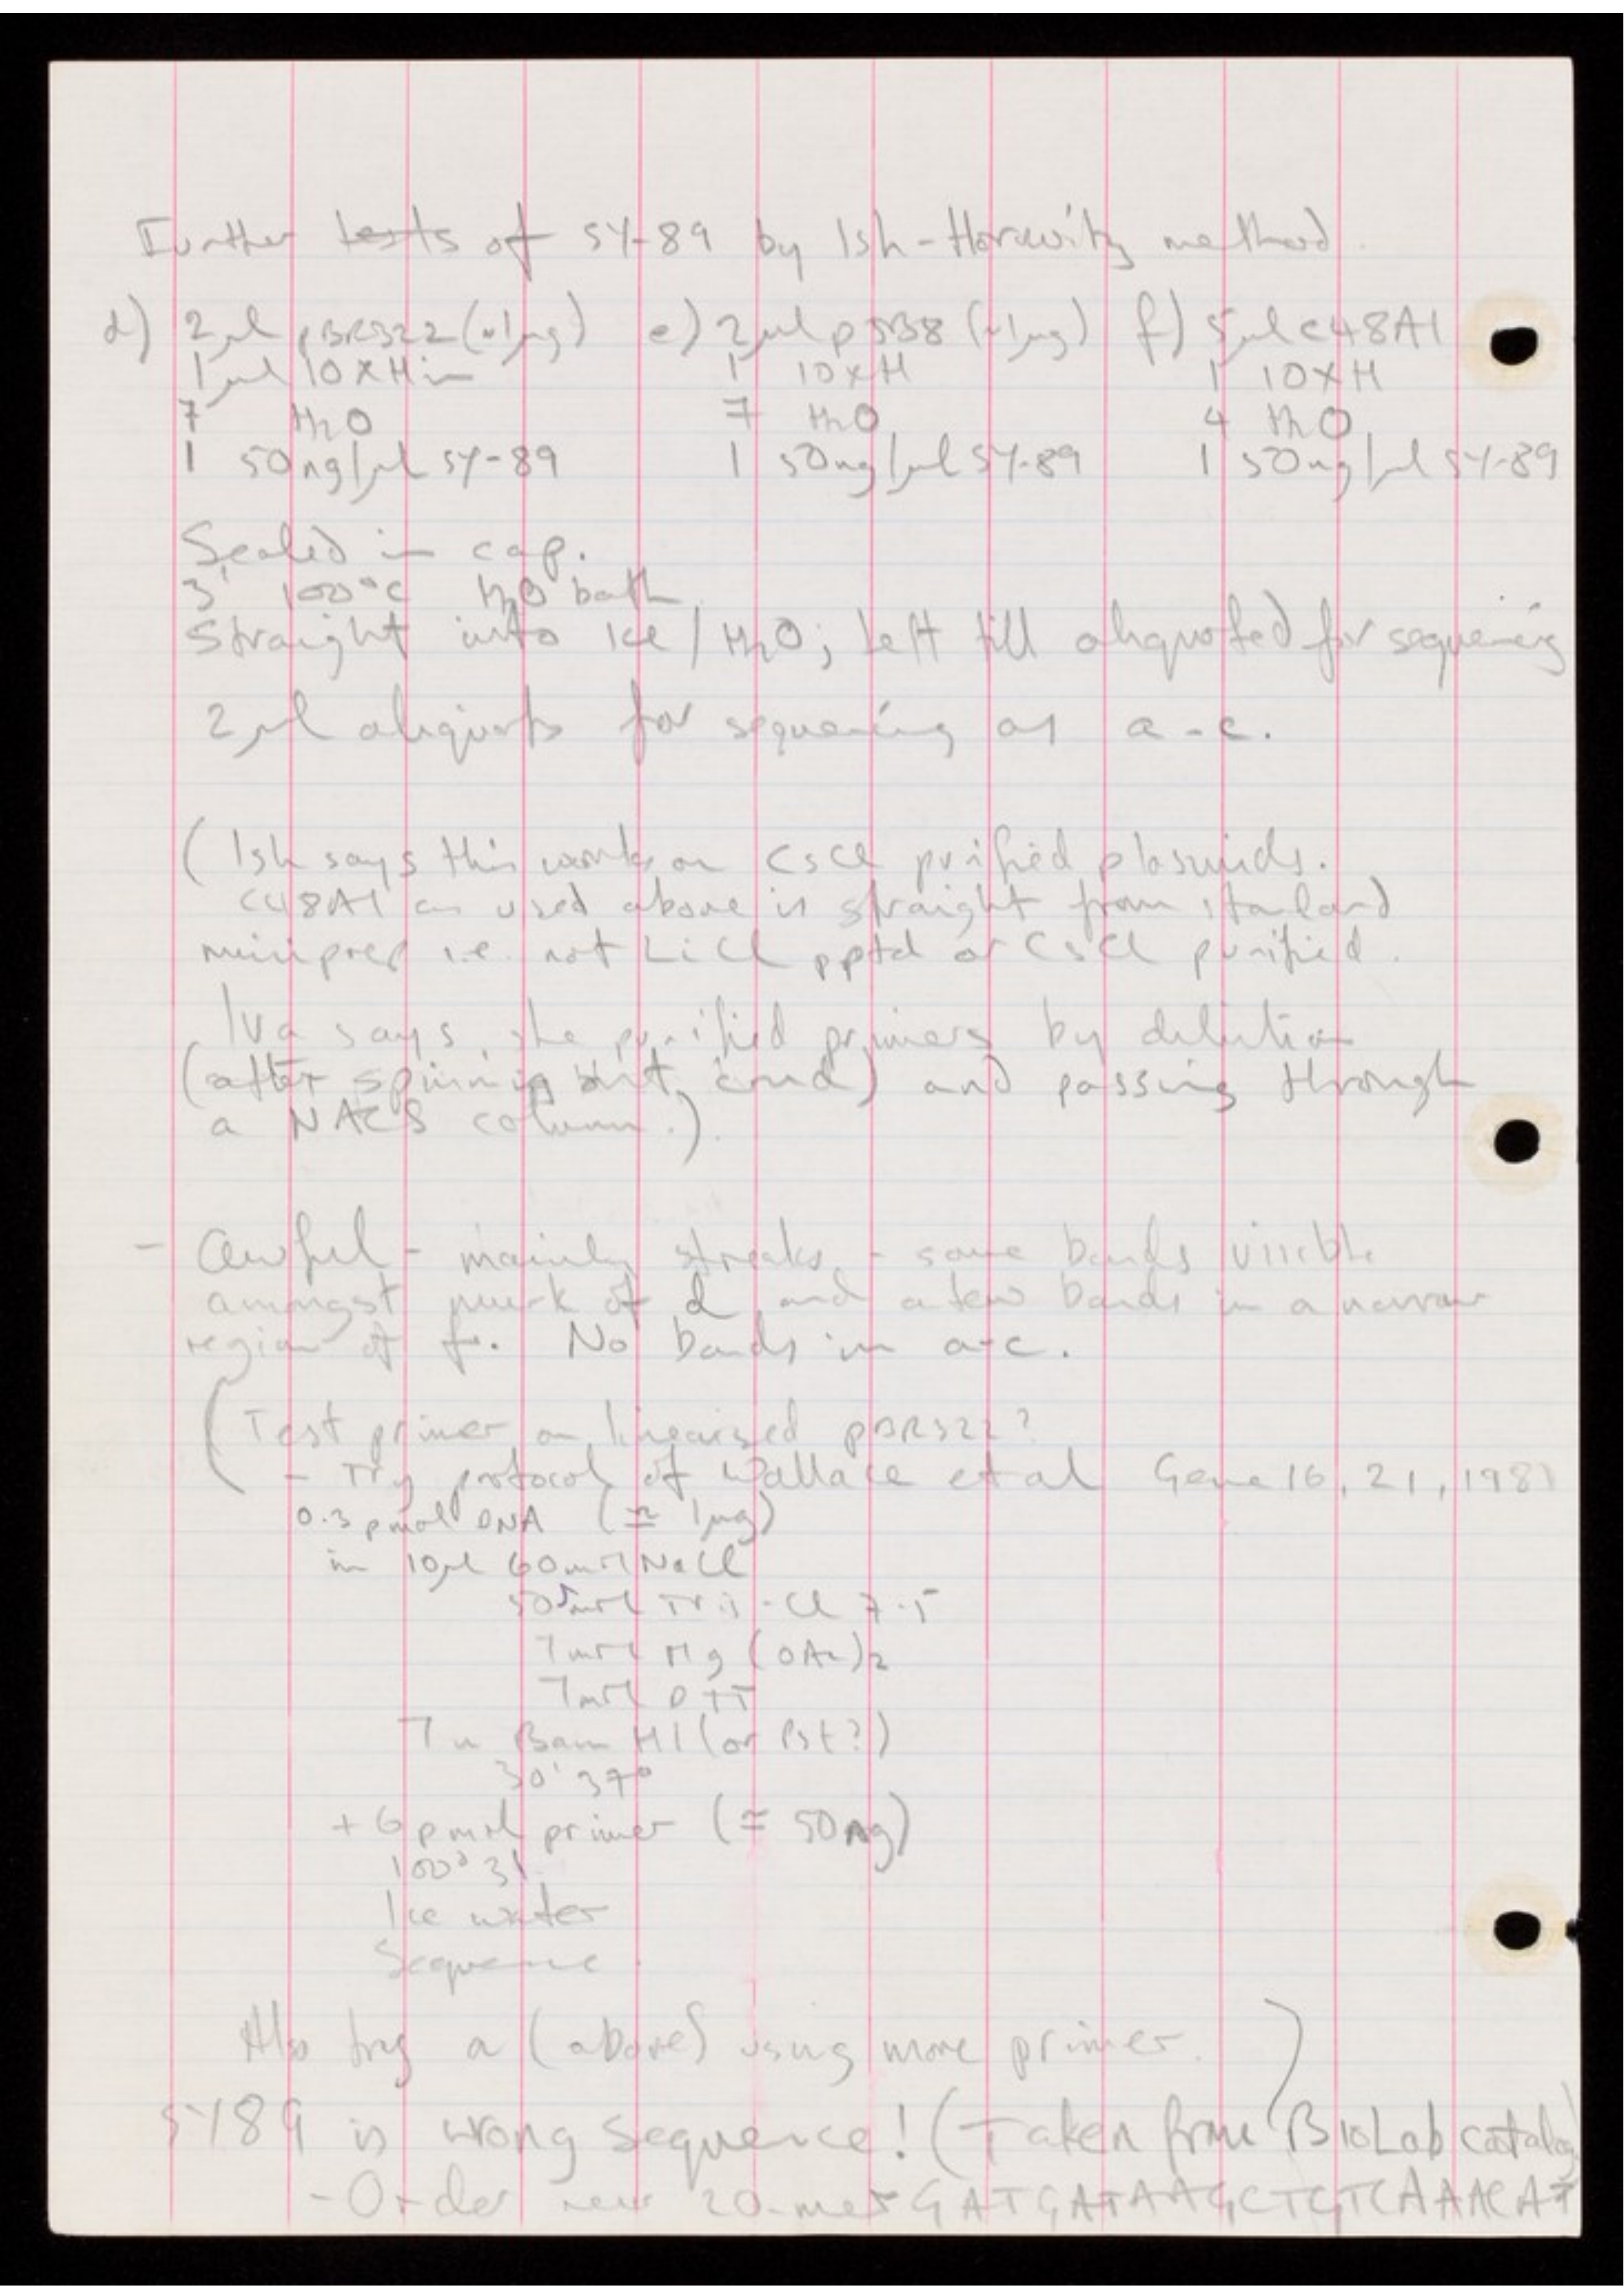 Further tests of SY-89 by Ish-Horowitz method.
d) 2µl pBR322 (~1µg) e) 2µl pSB8 (~1µg) f) 5µl c48A1
1µl 10xHin 1 10xH 1 10xH
7 H2O 7 H2O 4 H2O
1 50ng/µl SY-89 1 50ng/µl SY-89 1 50ng/µl SY-89
Sealed in cap.
3' 100°C H2O bath.
Straight into ice/H2O; left till aliquoted for sequencing
2µl aliquots for sequencing as a-c.
(Ish says this works on CsCl purified plasmids.
c48A1 as used above is straight from standard
miniprep i.e. not LiCl pptd or CsCl purified.
Iva says she purified primers by dilution
(after spinning out crud) and passing through
a NACS column.).
- Awful - mainly streaks - some bands visible
amongst murk of d and a few bands in a narrow
region of f. No bands in a-c.
(Test primer on linearised pBR322?
- Try protocol of Wallace et al Gene 16, 21, 1981
0.3 pmol DNA (≃ 1µg)
in 10µl 60mM NaCl
mM Tris-Cl 7.5
7mM Mg(OAc)2
7mM DTT
7u Bam H1 (or Pst?)
30' 37°
+ 6 pmol primer (≃ 50ng)
100° 3'
Ice water
Sequence.
Also try a (above) using more primer. )
SY89 is wrong sequence! (Taken from BioLab catalog
- Order new 20-mer GATGATAAGCTGTCAAACAT